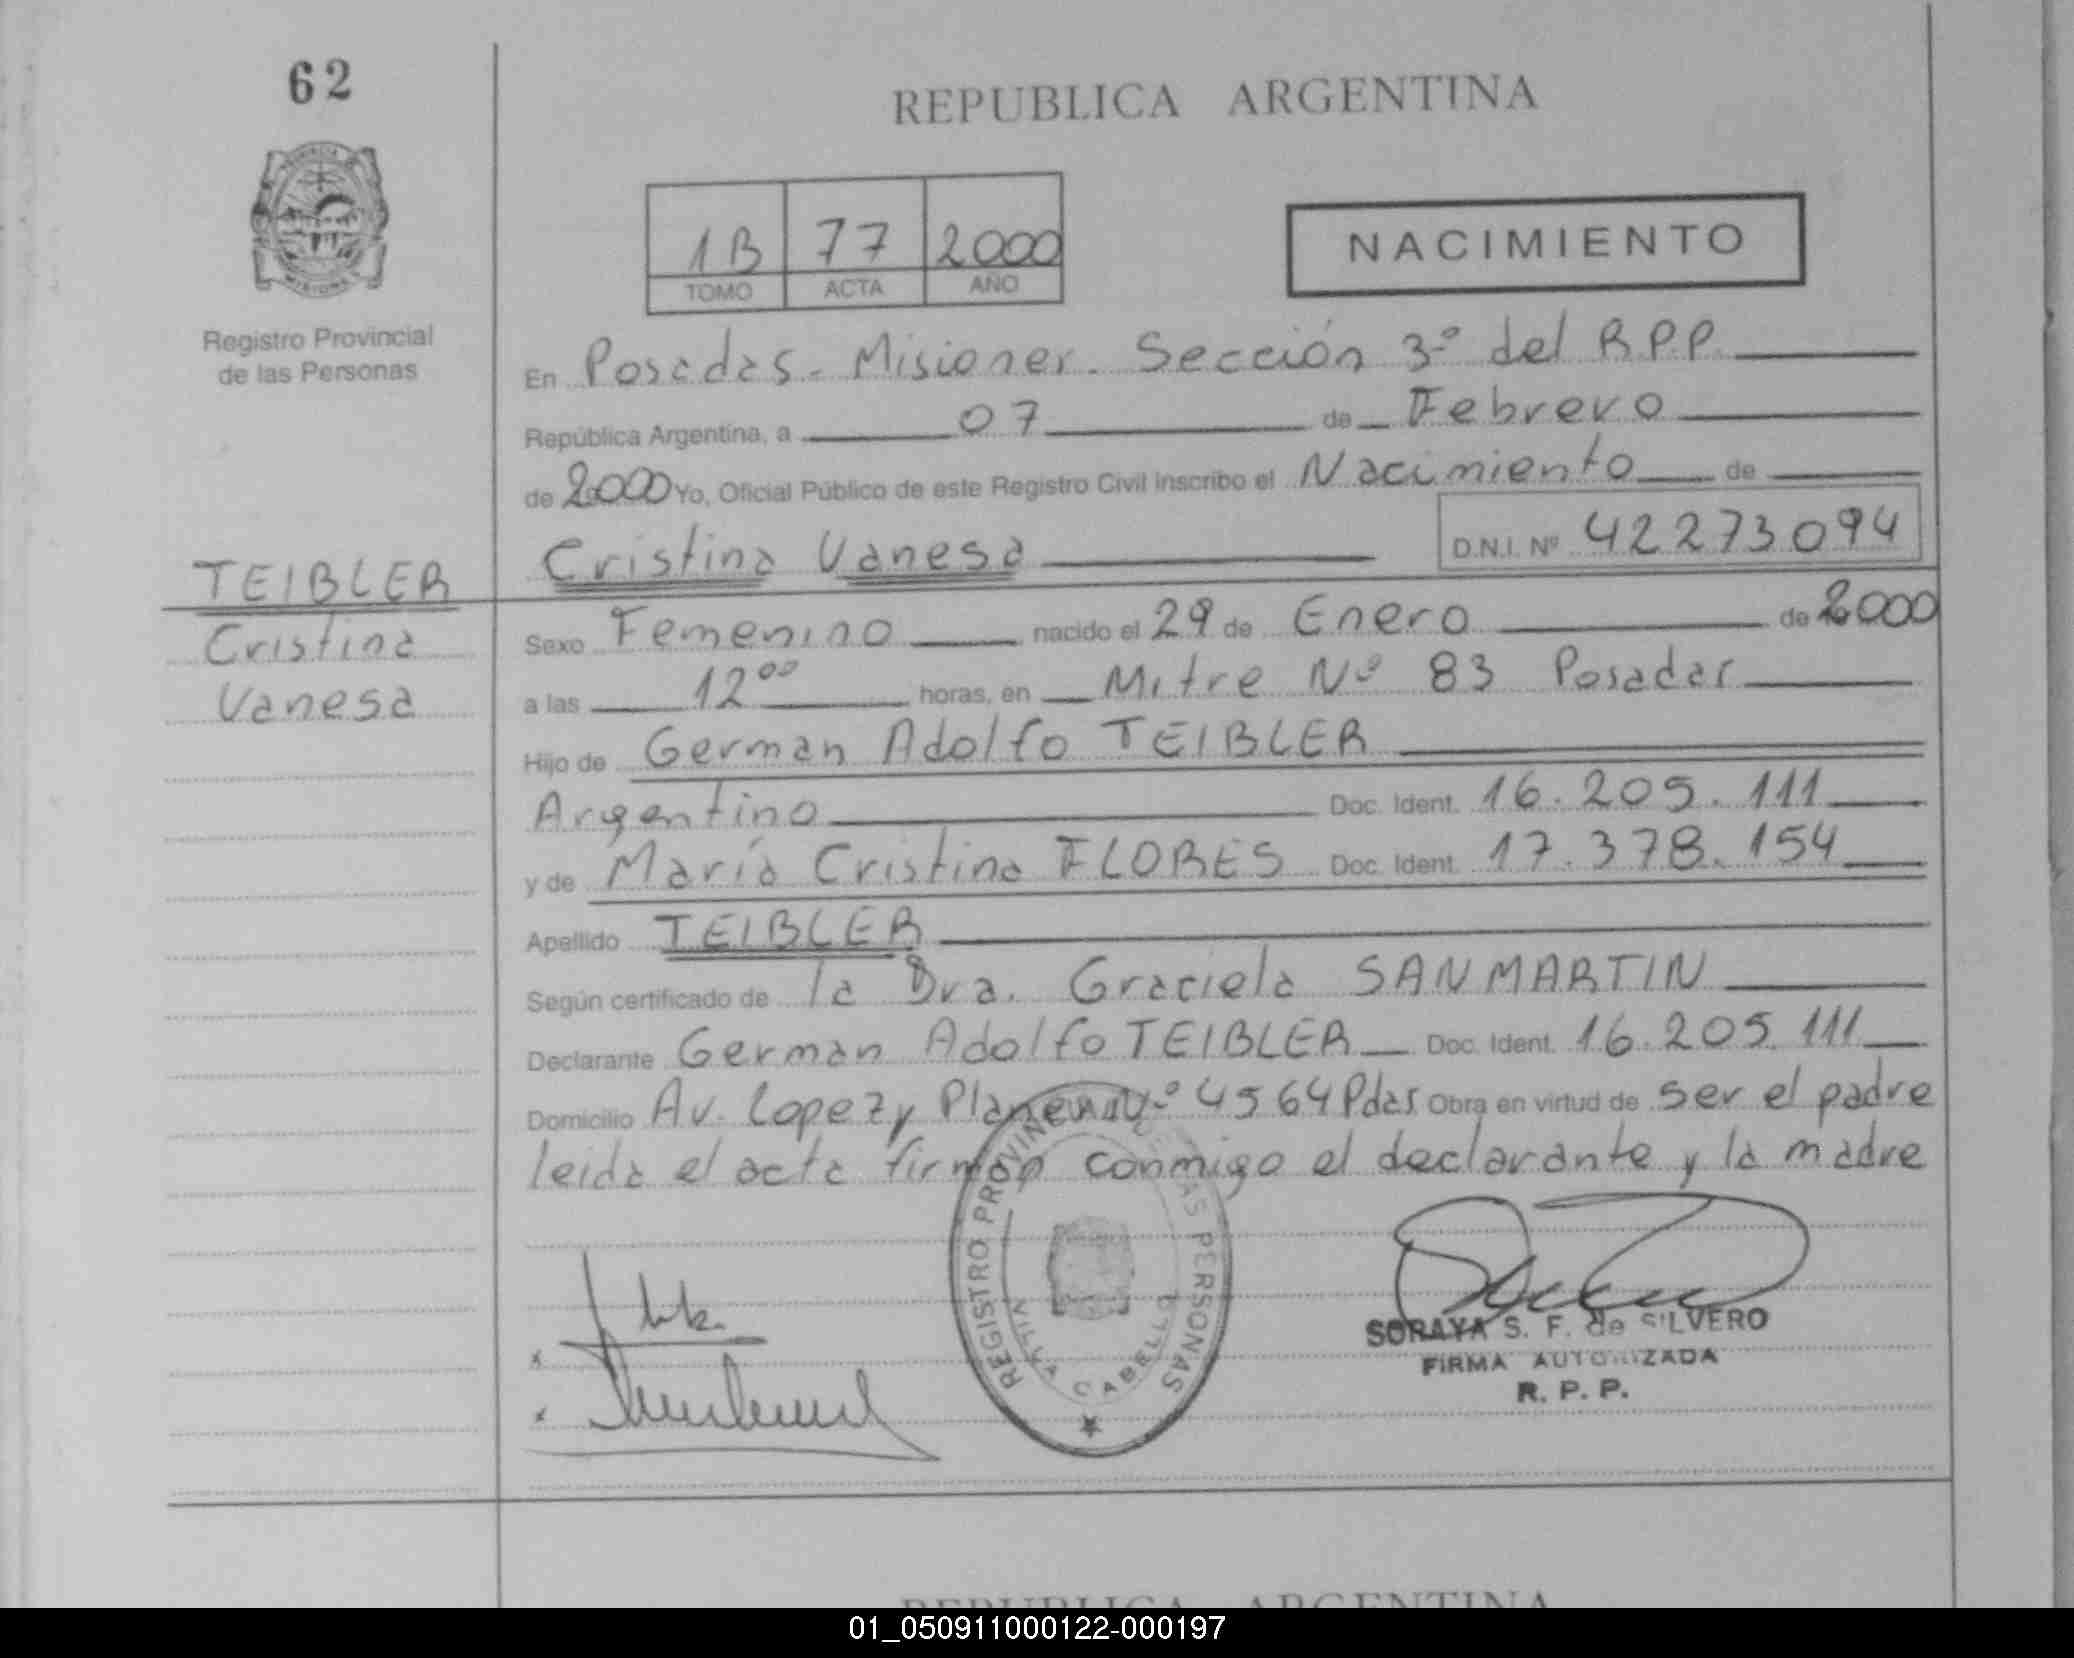 62
REPUBLICA ARGENTINA
1B 77 2000
TOMO ACTA AÑO
NACIMIENTO
Registro Provincial
de las Personas
En Posadas - Misiones. Sección 3º del R.P.P.
República Argentina, a 07 de Febrero
de 2000 Yo, Oficial Público de este Registro Civil inscribo el Nacimiento de
Cristina Vanesa D.N.I. Nº 42273094
TEIBLER
Cristina
Vanesa
Sexo Femenino nacido el 29 de Enero de 2000
a las 12⁰⁰ horas, en Mitre Nº 83 Posadas
Hijo de German Adolfo TEIBLER
Argentino Doc. Ident. 16.205.111
y de María Cristina FLORES Doc. Ident. 17.378.154
Apellido TEIBLER
Según certificado de la Dra. Graciela SANMARTIN
Declarante German Adolfo TEIBLER Doc. Ident. 16.205.111
Domicilio Av. Lopez y Planes Nº 4564 Pdas Obra en virtud de ser el padre
leida el acta firman conmigo el declarante y la madre
REGISTRO PROVINCIAL DE LAS PERSONAS
VILLA CABELLO
SORAYA S. F. de SILVERO
FIRMA AUTORIZADA
R. P. P.
REPUBLICA ARGENTINA
01_050911000122-000197